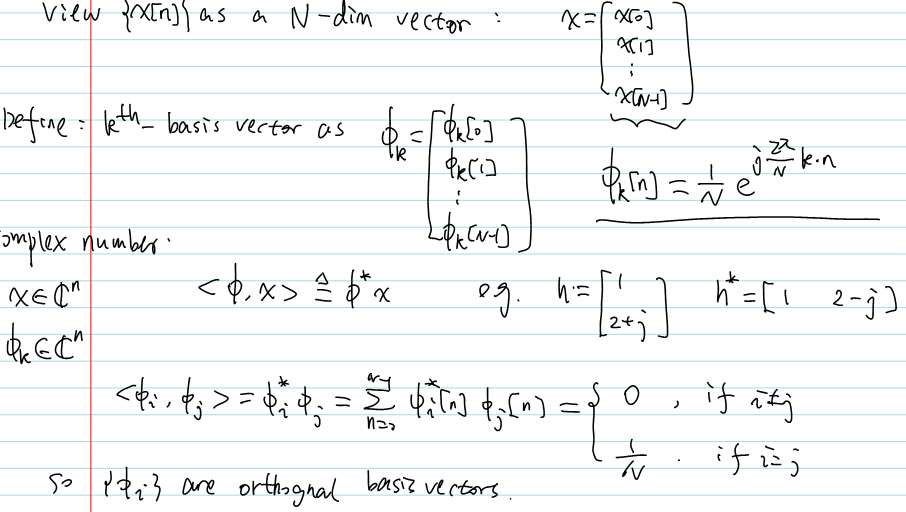 View {x[n]} as a N-dim vector : x = [x[0] x[1] ⋮ x[N-1]]
Define : kth- basis vector as ϕ_k = [ϕ_k[0] ϕ_k[1] ⋮ ϕ_k[N-1]]
ϕ_k[n] = 1/N e^{j 2π/N k·n}
omplex number.
x ∈ ℂ^n <ϕ, x> ≜ ϕ* x eg. h = [1 2+j] h* = [1 2-j]
ϕ_k ∈ ℂ^n
<ϕ_i, ϕ_j> = ϕ_i* ϕ_j = Σ_{n=0}^{N-1} ϕ_i*[n] ϕ_j[n] = { 0 , if i≠j
1/N . if i=j
So {ϕ_i} are orthognal basis vectors.